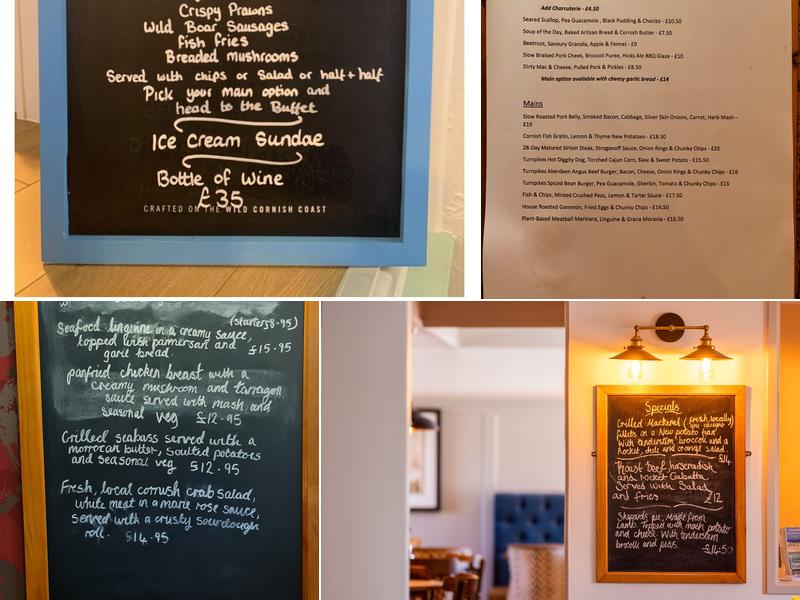 Crispy Prawns
Wild Boar Sausages
Fish fries
Breaded mushrooms
Served with chips or Salad or half + half
Pick your main option and
head to the Buffet
Ice Cream Sundae
Bottle of Wine
£35
CRAFTED ON THE WILD CORNISH COAST
Add Charcuterie - £4.50
Seared Scallop, Pea Guacamole , Black Pudding & Chorizo - £10.50
Soup of the Day, Baked Artisan Bread & Cornish Butter - £7.50
Beetroot, Savoury Granola, Apple & Fennel - £9
Slow Braised Pork Cheek, Broccoli Puree, Hicks Ale BBQ Glaze - £10
Dirty Mac & Cheese, Pulled Pork & Pickles - £8.50
Main option available with cheesy garlic bread - £14
Mains
Slow Roasted Pork Belly, Smoked Bacon, Cabbage, Silver Skin Onions, Carrot, Herb Mash -
£19
Cornish Fish Gratin, Lemon & Thyme New Potatoes - £18.50
28-Day Matured Sirloin Steak, Stroganoff Sauce, Onion Rings & Chunky Chips - £25
Turnpikes Hot Diggity Dog, Torched Cajun Corn, Slaw & Sweet Potato - £15.50
Turnpikes Aberdeen Angus Beef Burger, Bacon, Cheese, Onion Rings & Chunky Chips - £16
Turnpikes Spiced Bean Burger, Pea Guacamole, Gherkin, Tomato & Chunky Chips - £15
Fish & Chips, Minted Crushed Peas, Lemon & Tartar Sauce - £17.50
House Roasted Gammon, Fried Eggs & Chunky Chips - £14.50
Plant-Based Meatball Marinara, Linguine & Grana Moravia - £16.50
(starter £8.95)
Seafood linguine in a creamy sauce,
topped with parmesan and
garlic bread. £15.95
panfried chicken breast with a
creamy mushroom and tarragon
sauce served with mash and
seasonal veg £12.95
Grilled seabass served with a
moroccan butter, sauted potatoes
and seasonal veg £12.95
Fresh, local cornish crab salad,
white meat in a marie rose sauce,
served with a crusty sourdough
roll. £14.95
Specials
Grilled Mackerel (fresh, locally
line caught)
fillets on a New potato
With tenderstem broccoli and a
Rocket, and orange salad.
£14
Roast beef, horseradish
and rocket Ciabatta.
Served with Salad
and fries £12
Shepards pie, Made from
Lamb. Topped with mash potato
and cheese. With tenderstem
broccoli and peas. £14.50